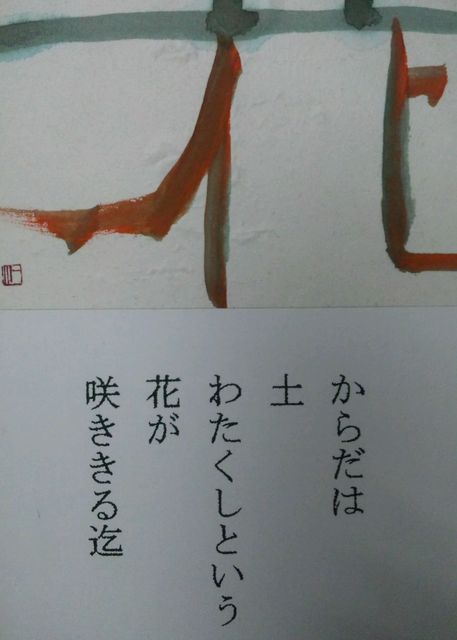 花
からだは
土
わたくしという
花が
咲ききる迄